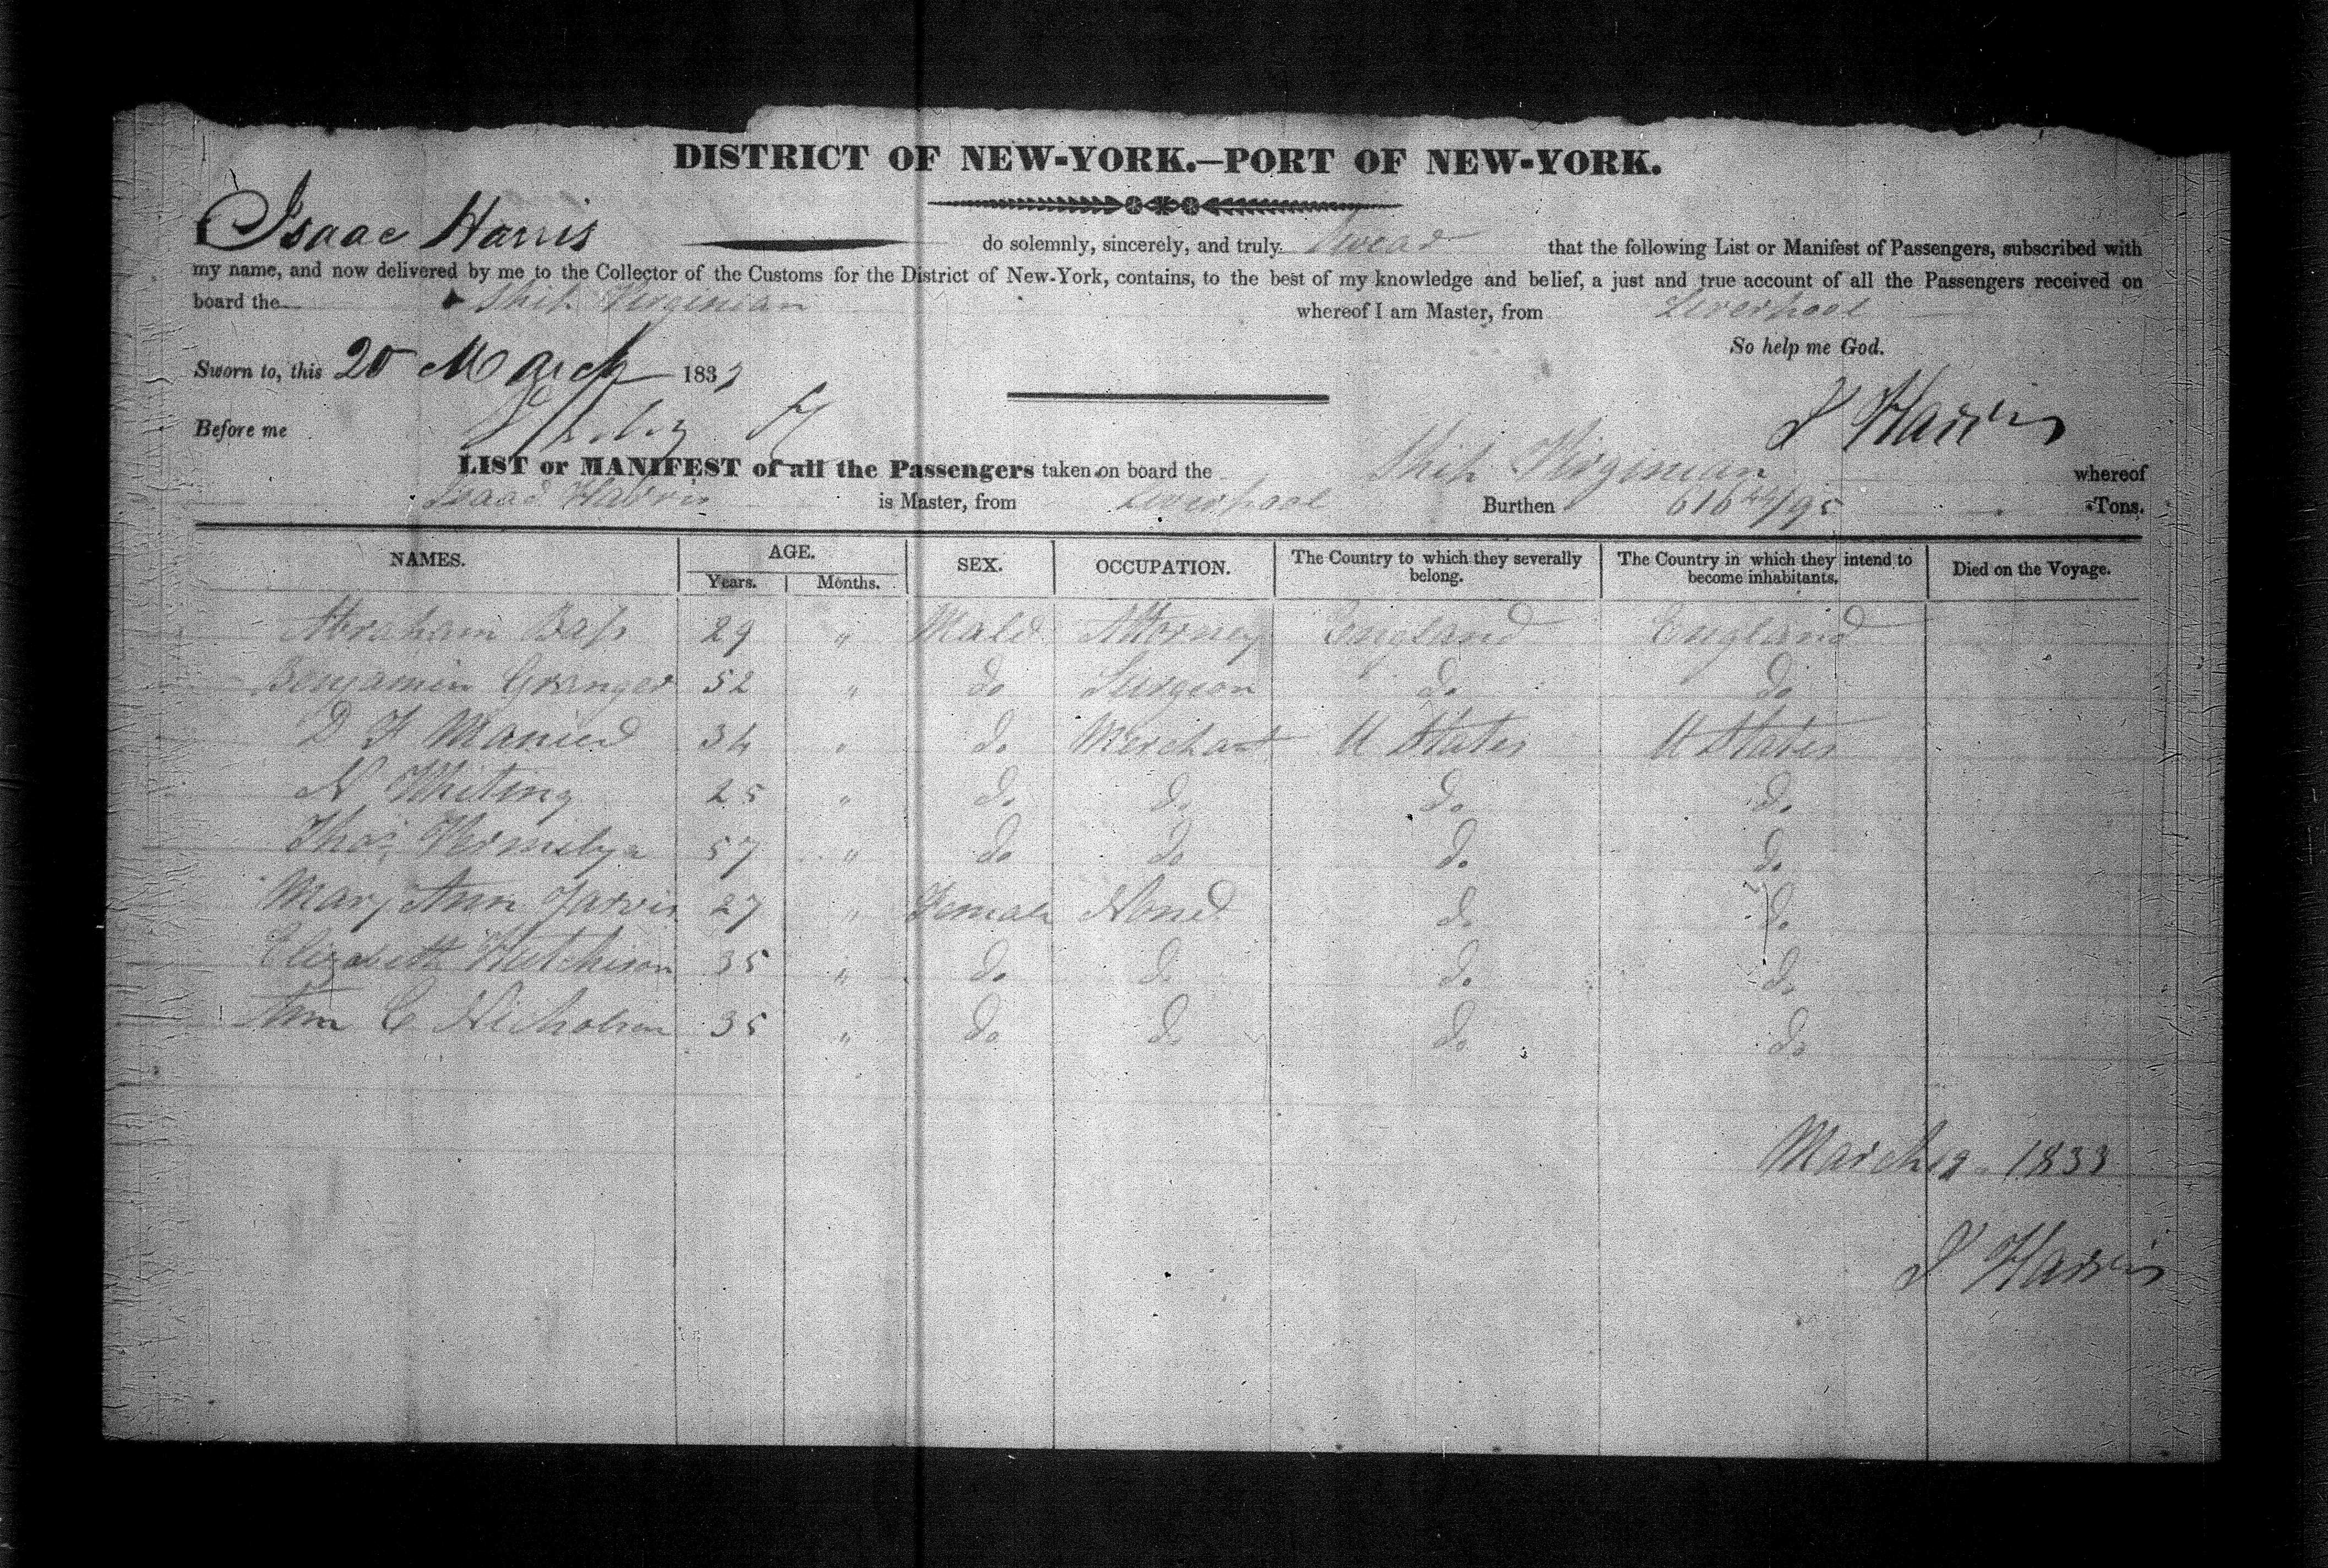 DISTRICT OF NEW-YORK.—PORT OF NEW-YORK.
Isaac Harris do solemnly, sincerely, and truly Swear that the following List or Manifest of Passengers, subscribed with
my name, and now delivered by me to the Collector of the Customs for the District of New-York, contains, to the best of my knowledge and belief, a just and true account of all the Passengers received on
board the Ship Virginian whereof I am Master, from Liverpool
So help me God.
Sworn to, this 20 March 1833
I Harris
Before me
LIST or MANIFEST of all the Passengers taken on board the Ship Virginian whereof
Isaac Harris is Master, from Liverpool Burthen 616 44/95 Tons.
NAMES. AGE. SEX. OCCUPATION. The Country to which they severally belong. The Country in which they intend to become inhabitants. Died on the Voyage.
Years. Months.
Abraham Bass 29 " Male Attorney England England
Benjamin Granger 52 " do Surgeon do do
D F 34 " do Merchant U States U States
N Whiting 25 " do do do do
Thos 57 " do do do do
Mary Ann Jarvis 27 " Female None do do
Elizabeth Hutchison 35 " do do do do
Ann C Nicholson 35 " do do do do
March 19 - 1833
I Harris